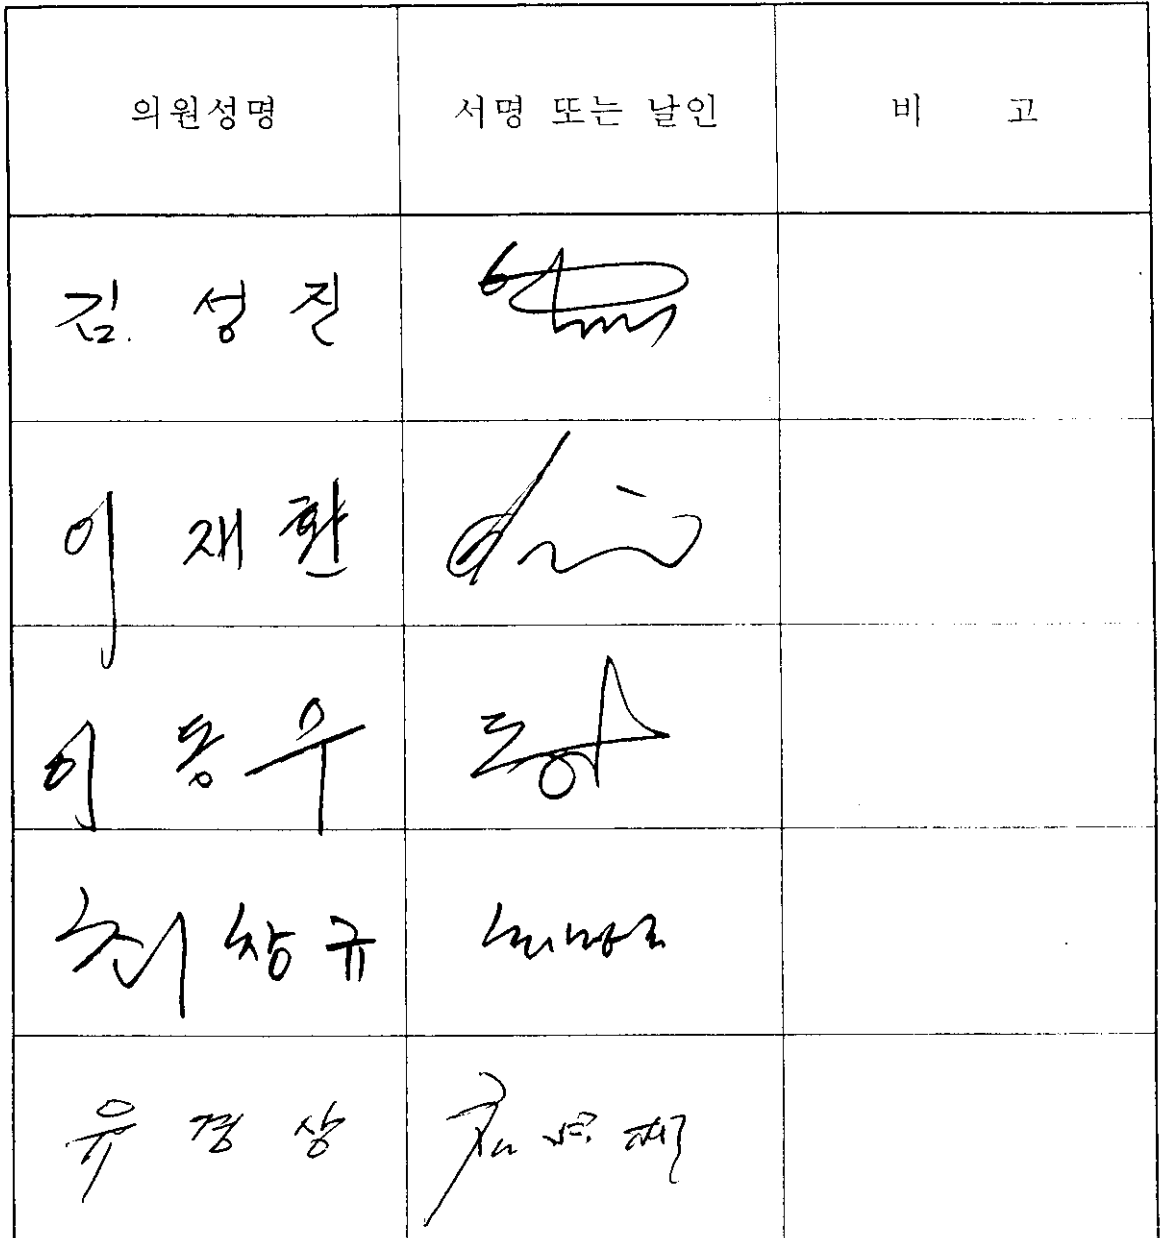 의원성명 서명 또는 날인 비 고
김. 성 진
이 재 환
이 동 우
최 창 규
유 경 상